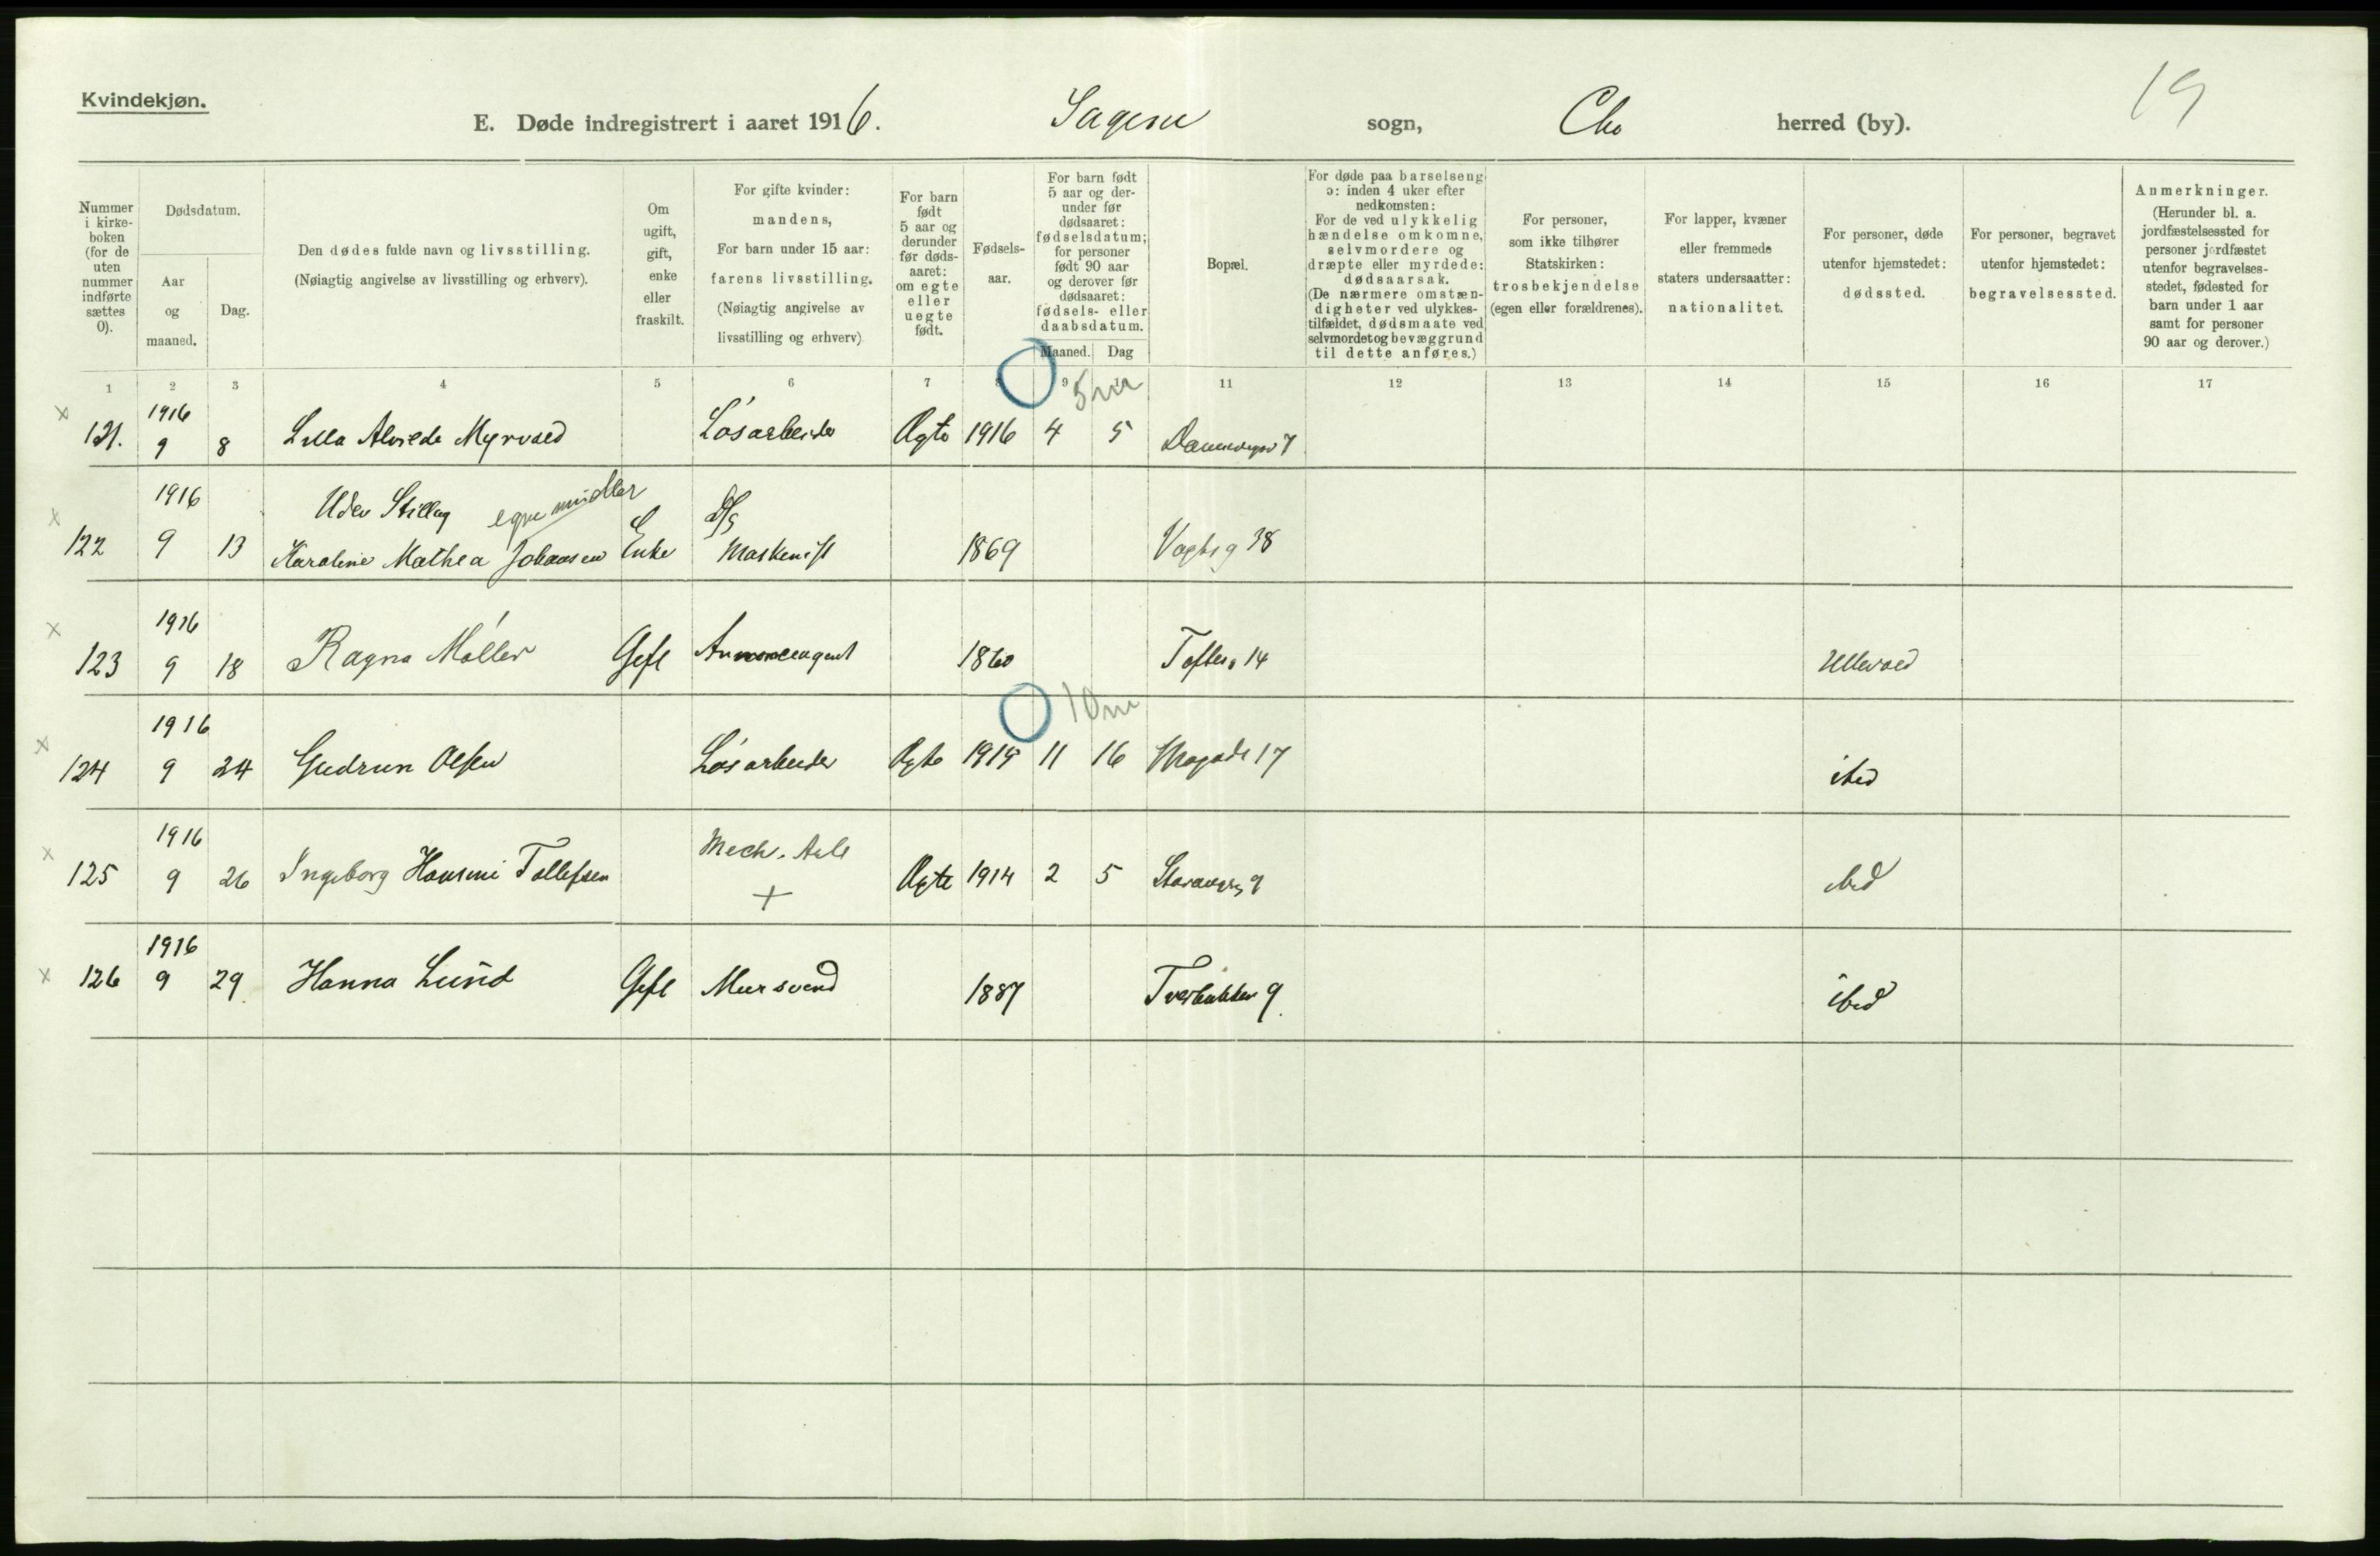 Kvindekjøn.
19
E. Døde indregistrert i aaret 1916. Sagene sogn, Chr herred (by).
Nummer i kirkeboken (for de uten nummer indførte sættes 0).
Dødsdatum.
Aar og maaned.
Dag.
Den dødes fulde navn og livsstilling.
(Nøiagtig angivelse av livsstilling og erhverv).
Om ugift, gift, enke eller fraskilt.
For gifte kvinder: mandens,
For barn under 15 aar: farens livsstilling.
(Nøiagtig angivelse av livsstilling og erhverv)
For barn født 5 aar og derunder før dødsaaret: om egte eller uegte født.
Fødselsaar.
For barn født 5 aar og derunder før dødsaaret: fødselsdatum; for personer født 90 aar og derover før dødsaaret: fødsels- eller daabsdatum.
Maaned. Dag
Bopæl.
For døde paa barselseng ɔ: inden 4 uker efter nedkomsten:
For de ved ulykkelig hændelse omkomne, selvmordere og dræpte eller myrdede: dødsaarsak.
(De nærmere omstændigheter ved ulykkestilfældet, dødsmaate ved selvmordet og bevæggrund til dette anføres.)
For personer, som ikke tilhører Statskirken: trosbekjendelse (egen eller forældrenes).
For lapper, kvæner eller fremmede staters undersaatter: nationalitet.
For personer, døde utenfor hjemstedet: dødssted.
For personer, begravet utenfor hjemstedet: begravelsessted.
Anmerkninger.
(Herunder bl. a. jordfæstelsessted for personer jordfæstet utenfor begravelsesstedet, fødested for barn under 1 aar samt for personer 90 aar og derover.)
1 2 3 4 5 6 7 8 9 11 12 13 14 15 16 17
5 m
× 1916
121. 9 8 Lilla Alvilde Myrvold Løsarbeider Ægte 1916 4 5 7
1916 Uden Stilling egne midler
× 122 9 13 Karoline Mathea Johansen Enke Maskenist 1869 Vogtsg 38
× 1916
123 9 18 Ragna Møller Gift Annonceagent 1860 Tofteg 14 Ullevold
10 m
× 1916
124 9 24 Gudrun Olsen Løsarbeider Ægte 1915 11 16 17 ibid
× 1916 Mech. Arb
125 9 26 Ingeborg Hansine Tollefsen + Ægte 1914 2 5 Stavangerg 9 ibid
1916
× 126 9 29 Hanna Lund Gift Mursvend 1887 Tverbakken 9. ibid